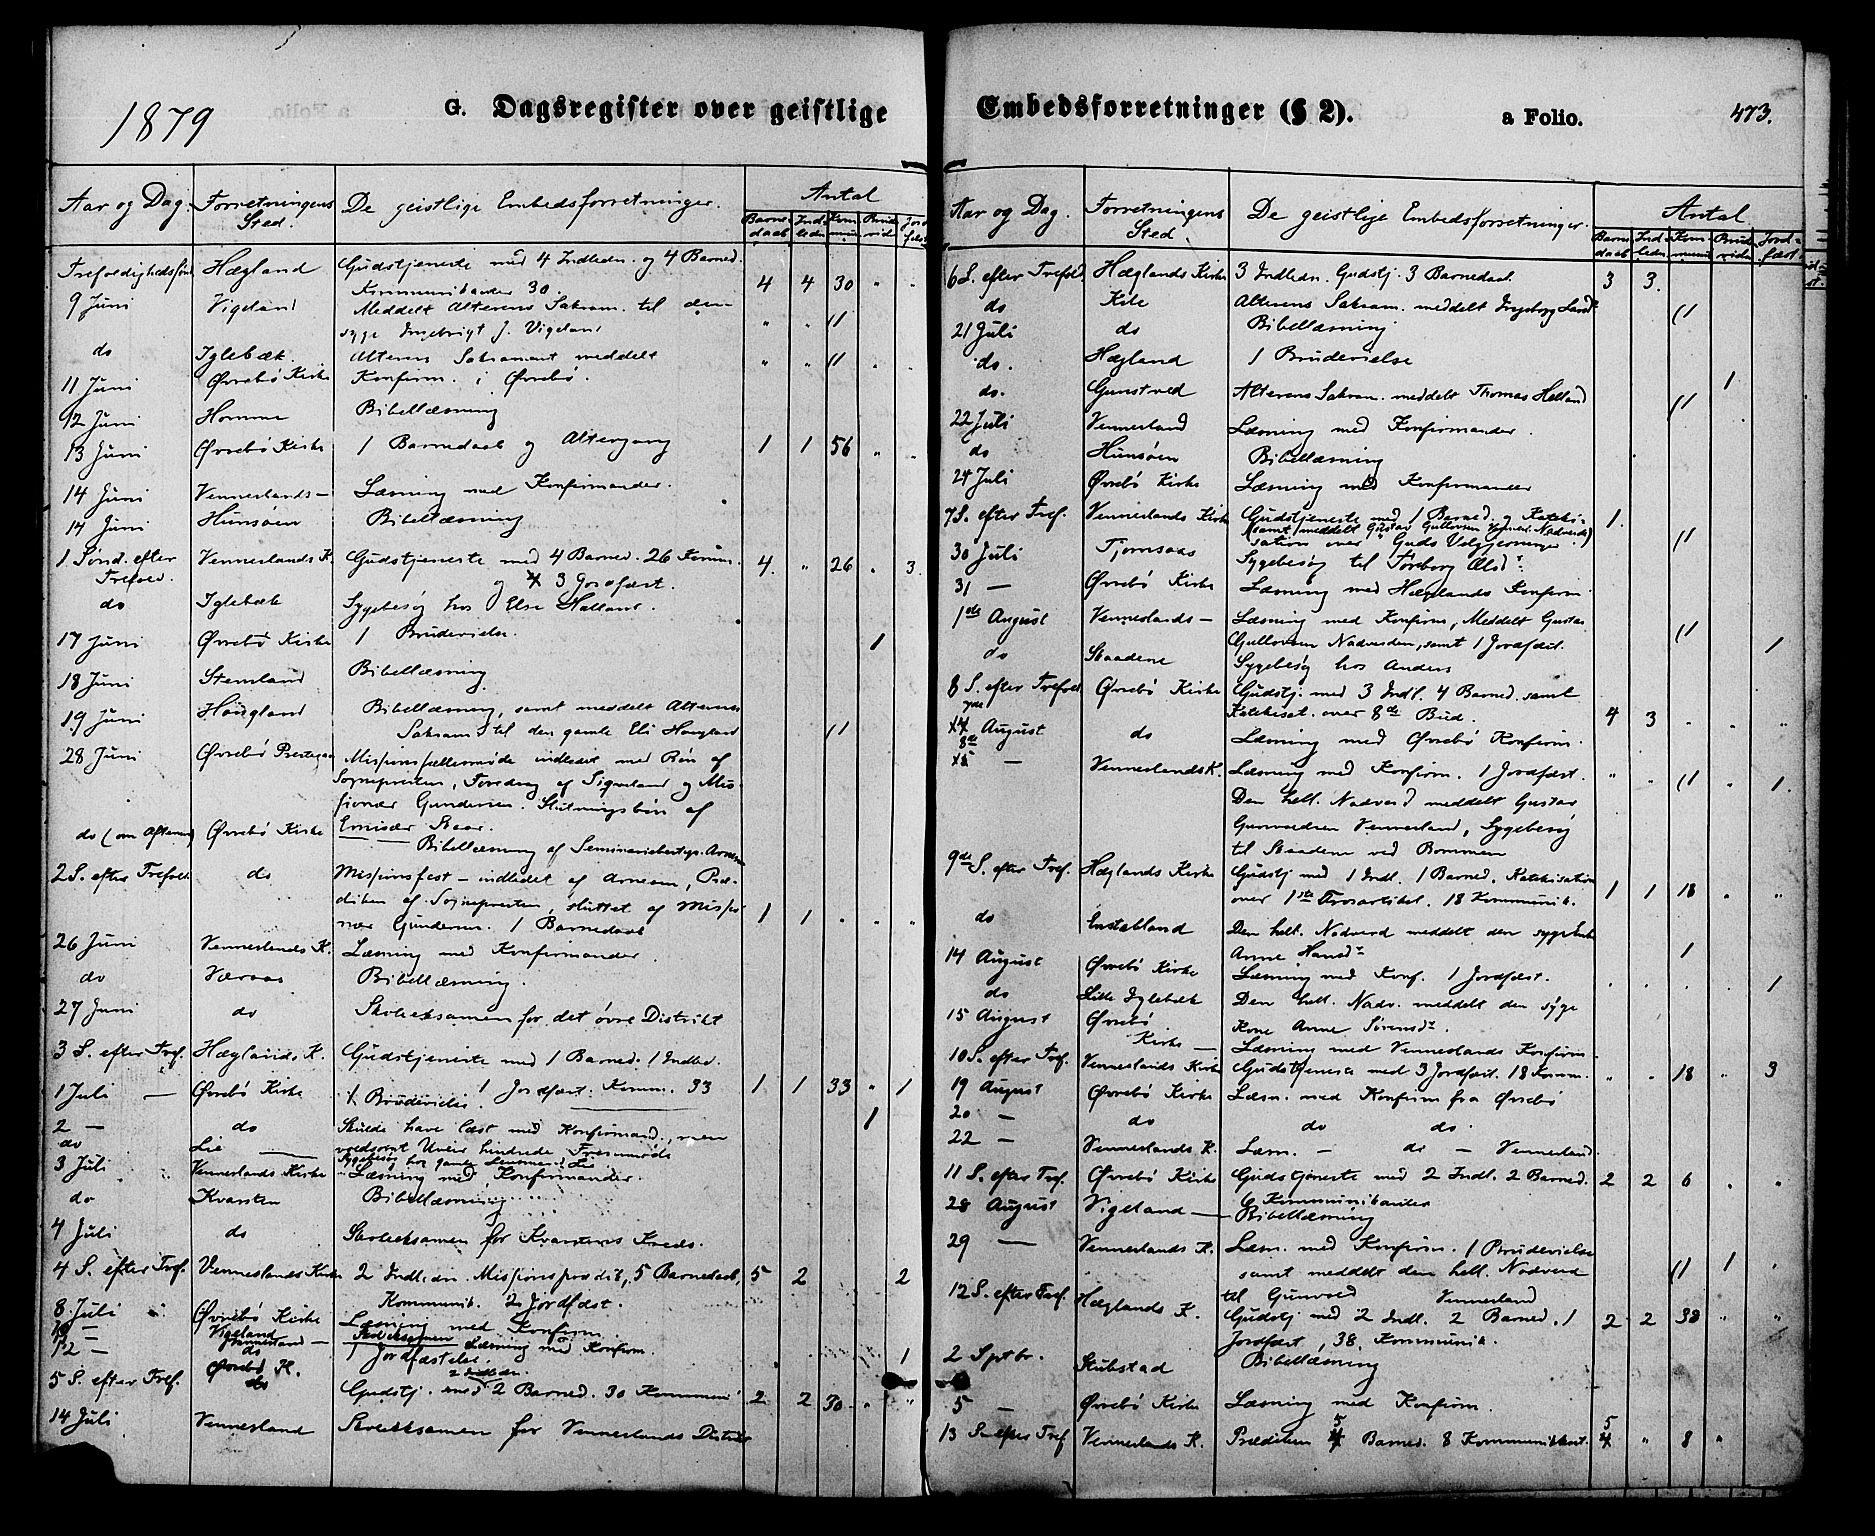 1879
G. Dagsregister over geistlige
Aar og Dag. Forretningens Sted. De geistlige Embedsforretninger. Antal
Barnedaab Indledn. Kommun. Brudevi. Jordfæst.
Hægland Gudstjeneste med 4 Indledn. og 4 Barned.
Kommunikanter 30. 4 4 30 " "
9 Juni Vigeland Meddelt Alterens Sakram. til den
syge Ingebrigt J. Vigeland " "
do Iglebæk. Alterens Sakrament meddelt " "
11 Juni Øvrebø Kirke Konfirm. i Øvrebø.
12 Juni Homme Bibellæsning
13 Juni Øvrebø Kirke 1 Barnedaab og Altergang 1 1 56 " "
14 Juni Venneslands — Læsning med Konfirmander.
14 Juni Hunsøen Bibellæsning
1 Sønd. efter Trefold. Venneslands K. Gudstjeneste med 4 Barned. 26 Komm. 4. " 26 " 3.
og 3 Jordfæst.
do Iglebæk Sygebesøg hos Else
17 Juni Øvrebø Kirke 1 Brudevielse. 1
18 Juni Stemland Bibellæsning
19 Juni Høugland Bibellæsning, samt meddelt Alterens
Sakram. til den gamle Eli Høugland
28 Juni Øvrebø Missionsfællesmøde indledet med Bøn af
Sognepresten, Foredrag af Signeland og Mis-
sionær Gundersen. Slutningsbøn af
Emisær
do (om Aftenen) Øvrebø Kirke Bibellæsning af
2 S. efter Trefold. do Missionsfest – indledet af Arnesen, Præ-
diken af Sognepresten, sluttet af Missio-
nær Gundersen. 1 Barnedaab 1 1 " " "
26 Juni Venneslands K. Læsning med Konfirmander.
do Væraas Bibellæsning.
27 Juni do Skoleeksamen for det øvre Distrikt
3 S. efter Tref. Hæglands K. Gudstjeneste med 1 Barned. 1 Indled.
1 Jordfæst. Komm. 33 1 1 33 " 1
1 Juli — Øvrebø Kirke 1 Brudevielse. 1
2 — do Skulde have læst med Konfirmand., men
voldsomt Uveir hindrede Fremmøde
do Lie Sygebesøg hos gamle
3 Juli Venneslands Kirke Læsning med Konfirmander.
do Kvarsten Bibellæsning
4 Juli do Skoleeksamen for Kvarstens Kreds.
4 S. efter Tref. Venneslands Kirke 2 Indledn. Missionspræd, 5 Barnedaab, 5 2 2
Kommunik. 2 Jordfæst.
8 Juli Øvrebø Kirke Læsning med Konfirm.
10 — Vigeland Skoleeksamen
12 — Læsning med Konfirm.
do 1 Jordfæstelse. 1
5 S. efter Tref. Øvrebø K. 2 Indledn.
Gudstj. med 2 Barned. 30 Kommuni 2 2 30 " "
14 Juli Vennesland Skoleeksamen for Venneslands Distrikt
Embedsforretninger (§ 2). a Folio. 473.
Aar og Dag. Forretningens Sted. De geistlige Embedsforretninger. Antal
Barnedaab Indledn. Kommuni Brudevi Jordfæst
6 S. efter Trefold. Hæglands Kirke 3 Indledn. Gudstj. 3 Barnedaab. 3 3.
do Kile Alterens Sakram. meddelt
21 Juli do Bibellæsning
do. Hægland 1 Brudevielse 1
do. Gunstved Alterens Sakram. meddelt Thomas Helland
22 Juli Vennesland Læsning med Konfirmander.
do Hunsøen Bibellæsning
24 Juli Øvrebø Kirke Læsning med Konfirmander
7 S. efter Tref. Venneslands Kirke Gudstjeneste med 1 Barned. og Kateki- 1.
sation over Guds Velgjerninger.
30 Juli Tjomsaas Sygebesøg til
31 — Øvrebø Kirke Læsning med Hæglands Konfirm
1de August Venneslands — Læsning med Konfirm, Meddelt Gustav
Nadverden, samt 1 Jordfæst. 1
do Skaadene Sygebesøg hos Anders
8 S. efter Trefold Øvrebø Kirke Gudstj. med 3 Indl. 4 Barned. samt
Katekisat. over 8de Bud. 4 3 " " "
7de August do Læsning med Øvrebø Konfirm.
8de — Venneslands K. Læsning med Konfirm. 1 Jordfæst. " " " 1.
Den hell. Nadverd meddelt Gustav
Vennesland, Sygebesøg
til Skaadene ved Bommen
9de S. efter Tref. Hæglands Kirke Gudstj med 1 Indl. 1 Barned. Katekisation
over 1ste Trosartikel. 18 Kommunik. 1 1 18 " "
do Eustabland Den hell. Nadverd meddelt den
Anne Hansd. 1
14 August Øvrebø Kirke Læsning med Konf. 1 Jordfæst. 1
do Lille Iglebæk Den hell. Nadv. meddelt den syge
Kone Anne Sørensd.
15 August Øvrebø Kirke — Læsning med Venneslands Konfirm.
10 S. efter Tref. Venneslands Kirke Gudstjeneste med 3 Jordfæst. 18 Komm. " " 18 " 3
19 August Øvrebø Kirke Læsn. med Konfirm fra Øvrebø
20 — do do do.
22 — Venneslands K. Læsn. — do — Vennesland.
11 S. efter Tref. Øvrebø Kirke Gudstjeneste med 2 Indl. 2 Barned. 2 2 6 " "
6 Kommunikanter
28 August Vigeland — Bibellæsning
29 — Venneslands K. Læsn. med Konfirm. 1 Brudevielse
samt meddelt den hell. Nadverd 1
til Gunvold Vennesland
12 S. efter Tref. Hæglands K. Gudstj med 2 Indl. 2 Barned. 1 2 2 38 " "
Jordfæst, 38 Kommunik.
2 Sptbr. Stubstad Bibellæsning
5 — Øvrebø Kirke Læsning med Konfirm.
13 S. efter Tref Venneslands K. Prædiken 5 Barned. 8 Kommunikant. 5 " 8 "